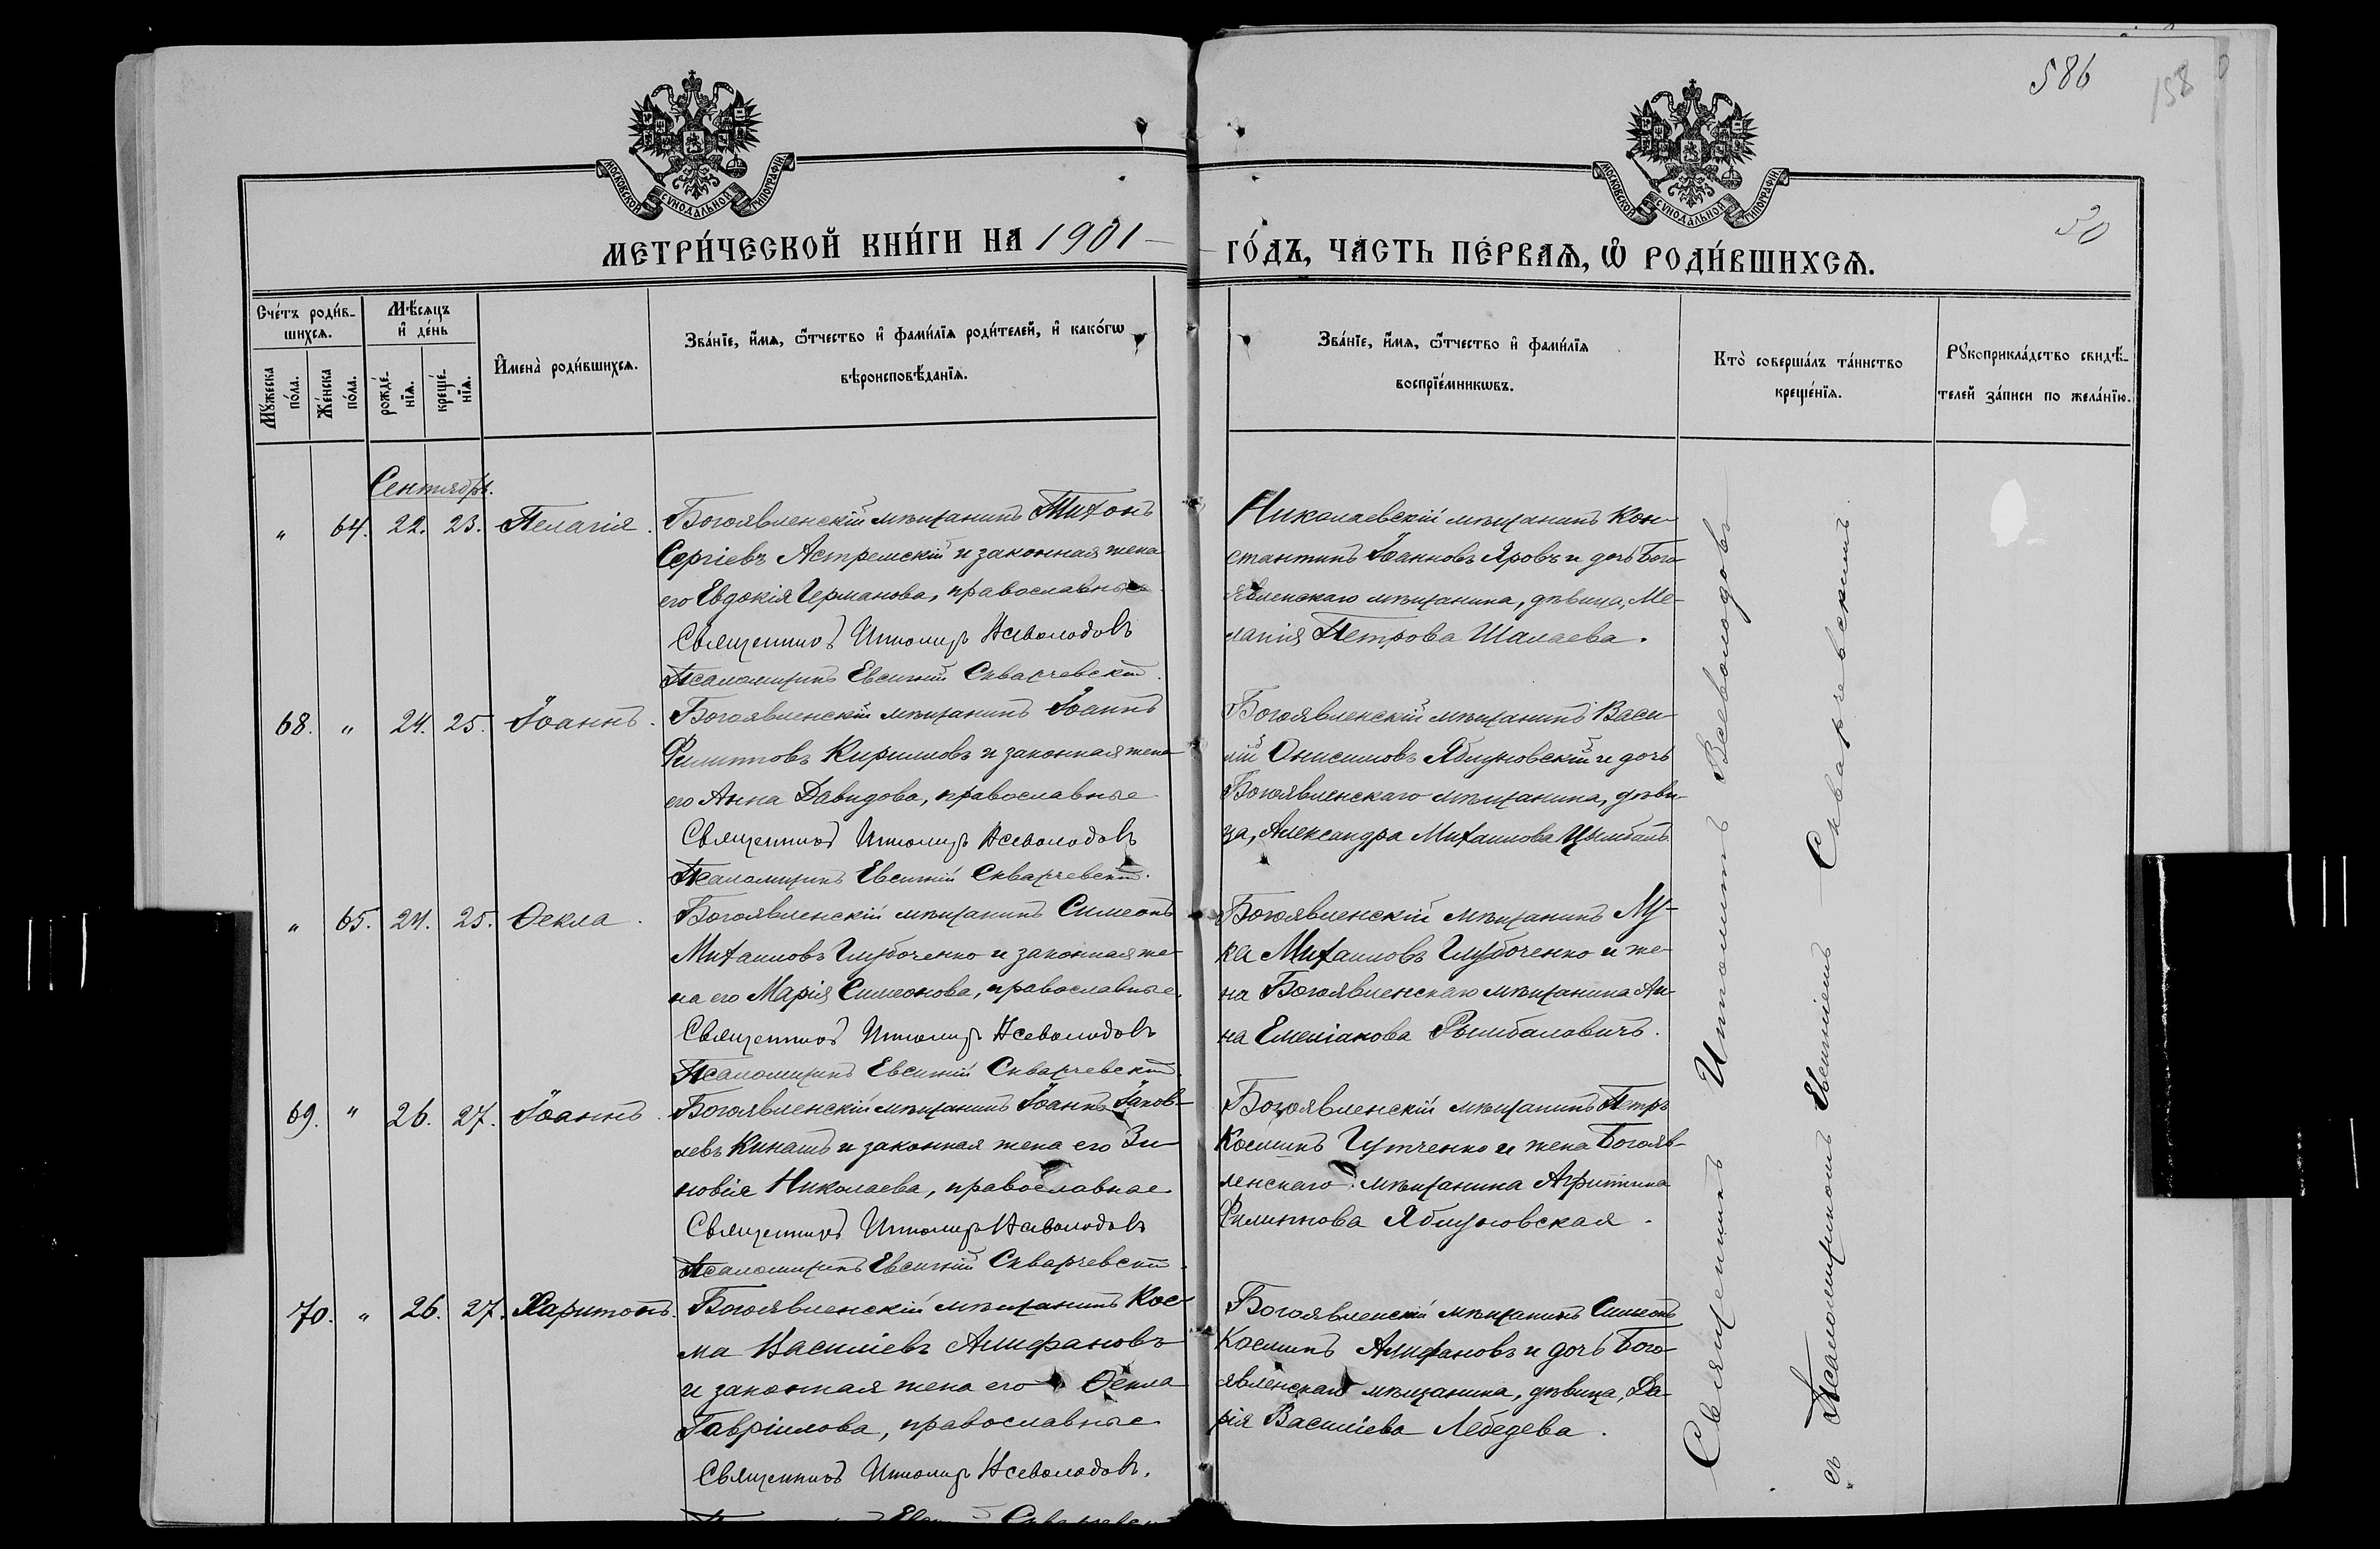 586
158
30
МОСКОВСКОЙ СУНОДАЛЬНОЙ ТИПОГРАФІИ
МОСКОВСКОЙ СУНОДАЛЬНОЙ ТИПОГРАФІИ
МЕТРИ́ЧЕСКОЙ КНИ́ГИ НА 1901
ГО́ДЪ, ЧА́СТЬ ПЕ́РВАѦ, Ѡ҆ РОДИ́ВШИХСѦ.
Сче́тъ роди́в-
шихсѧ.
Мѣ́сѧцъ
и҆ де́нь
Мꙋ́жеска
по́ла.
Же́нска
по́ла.
рожде́-
нїѧ.
креще́-
нїѧ.
И҆мена̀ роди́вшихсѧ.
Зва́нїе, и҆́мѧ, ѻ҆́тчество и҆ фами́лїѧ роди́телей, и҆ како́гѡ
вѣроисповѣ́данїѧ.
Зва́нїе, и҆́мѧ, ѻ҆́тчество и҆ фами́лїѧ
воспрїе́мникѡвъ.
Кто̀ соверша́лъ та́инство
креще́нїѧ.
Рꙋкоприкла́дство свидѣ́-
телей за́писи по жела́нїю.
Сентябрь.
" 64. 22. 23. Пелагія.
Богоявленскій мѣщанинъ Тихонъ
Сергіевъ Астремскій и законная жена
его Евдокія Германова, православные
Священникъ Всеволодовъ
Псаломщикъ Евсигній Скварчевскій.
Николаевскій мѣщанинъ Кон-
стантинъ Іоанновъ Яровъ и дочь Бого-
явленскаго мѣщанина, дѣвица, Ме-
лагія Петрова Шалаева.
68. " 24. 25. Іоаннъ.
Богоявленскій мѣщанинъ Іоаннъ
Филипповъ Кирилловъ и законная жена
его Анна Давидова, православные
Священникъ Всеволодовъ
Псаломщикъ Евсигній Скварчевскій.
Богоявленскій мѣщанинъ Васи-
лій Онисимовъ Яблуновскій и дочь
Богоявленскаго мѣщанина, дѣви-
ца, Александра Михаилова Цымбалъ
" 65. 24. 25. Ѳекла.
Богоявленскій мѣщанинъ Симеонъ
Михаиловъ Глубоченко и законная же-
на его Марія Симеонова, православные.
Священникъ Всеволодовъ
Псаломщикъ Евсигній Скварчевскій
Богоявленскій мѣщанинъ Лу-
ка Михаиловъ Глубоченко и же-
на Богоявленскаго мѣщанина Ан-
на Емеліанова Рымбаловичъ.
69. " 26. 27. Іоаннъ.
Богоявленскій мѣщанинъ Іоаннъ Іаков-
левъ Кинашъ и законная жена его Зи-
новія Николаева, православные
Священникъ Всеволодовъ
Псаломщикъ Евсигній Скварчевскій.
Богоявленскій мѣщанинъ Петръ
Косминъ и жена Богояв-
ленскаго мѣщанина
Филиппова Яблуновская.
70. " 26. 27. Харитонъ.
Богоявленскій мѣщанинъ Кос-
ма Василіевъ Алифановъ
и законная жена его Ѳекла
Гавріилова, православные
Священникъ Всеволодовъ.
Богоявленскій мѣщанинъ Симеонъ
Косминъ Алифановъ и дочь Бого-
явленскаго мѣщанина, дѣвица, Да-
рія Василіева Лебедева.
Священникъ Всеволодовъ
съ Псаломщикомъ Евсигніемъ Скварчевскимъ